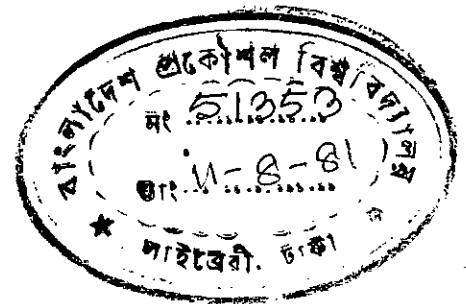 বাংলাদেশ প্রকৌশল বিশ্ববিদ্যালয়
নং 51353
তাং 11-8-81
★ লাইব্রেরী. ঢাকা